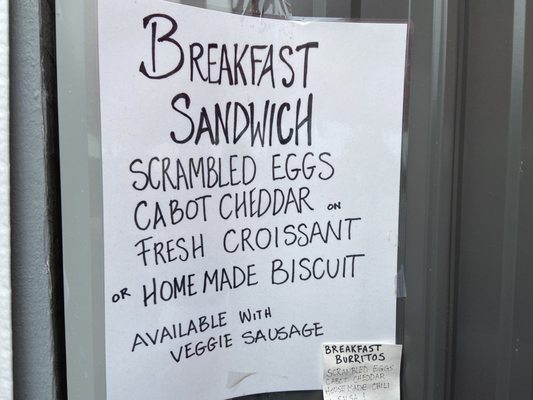 BREAKFAST
SANDWICH
SCRAMBLED EGGS
CABOT CHEDDAR ON
FRESH CROISSANT
OR HOMEMADE BISCUIT
AVAILABLE WITH
VEGGIE SAUSAGE
BREAKFAST
BURRITOS
SCRAMBLED EGGS
CABOT CHEDDAR
HOUSEMADE CHILI